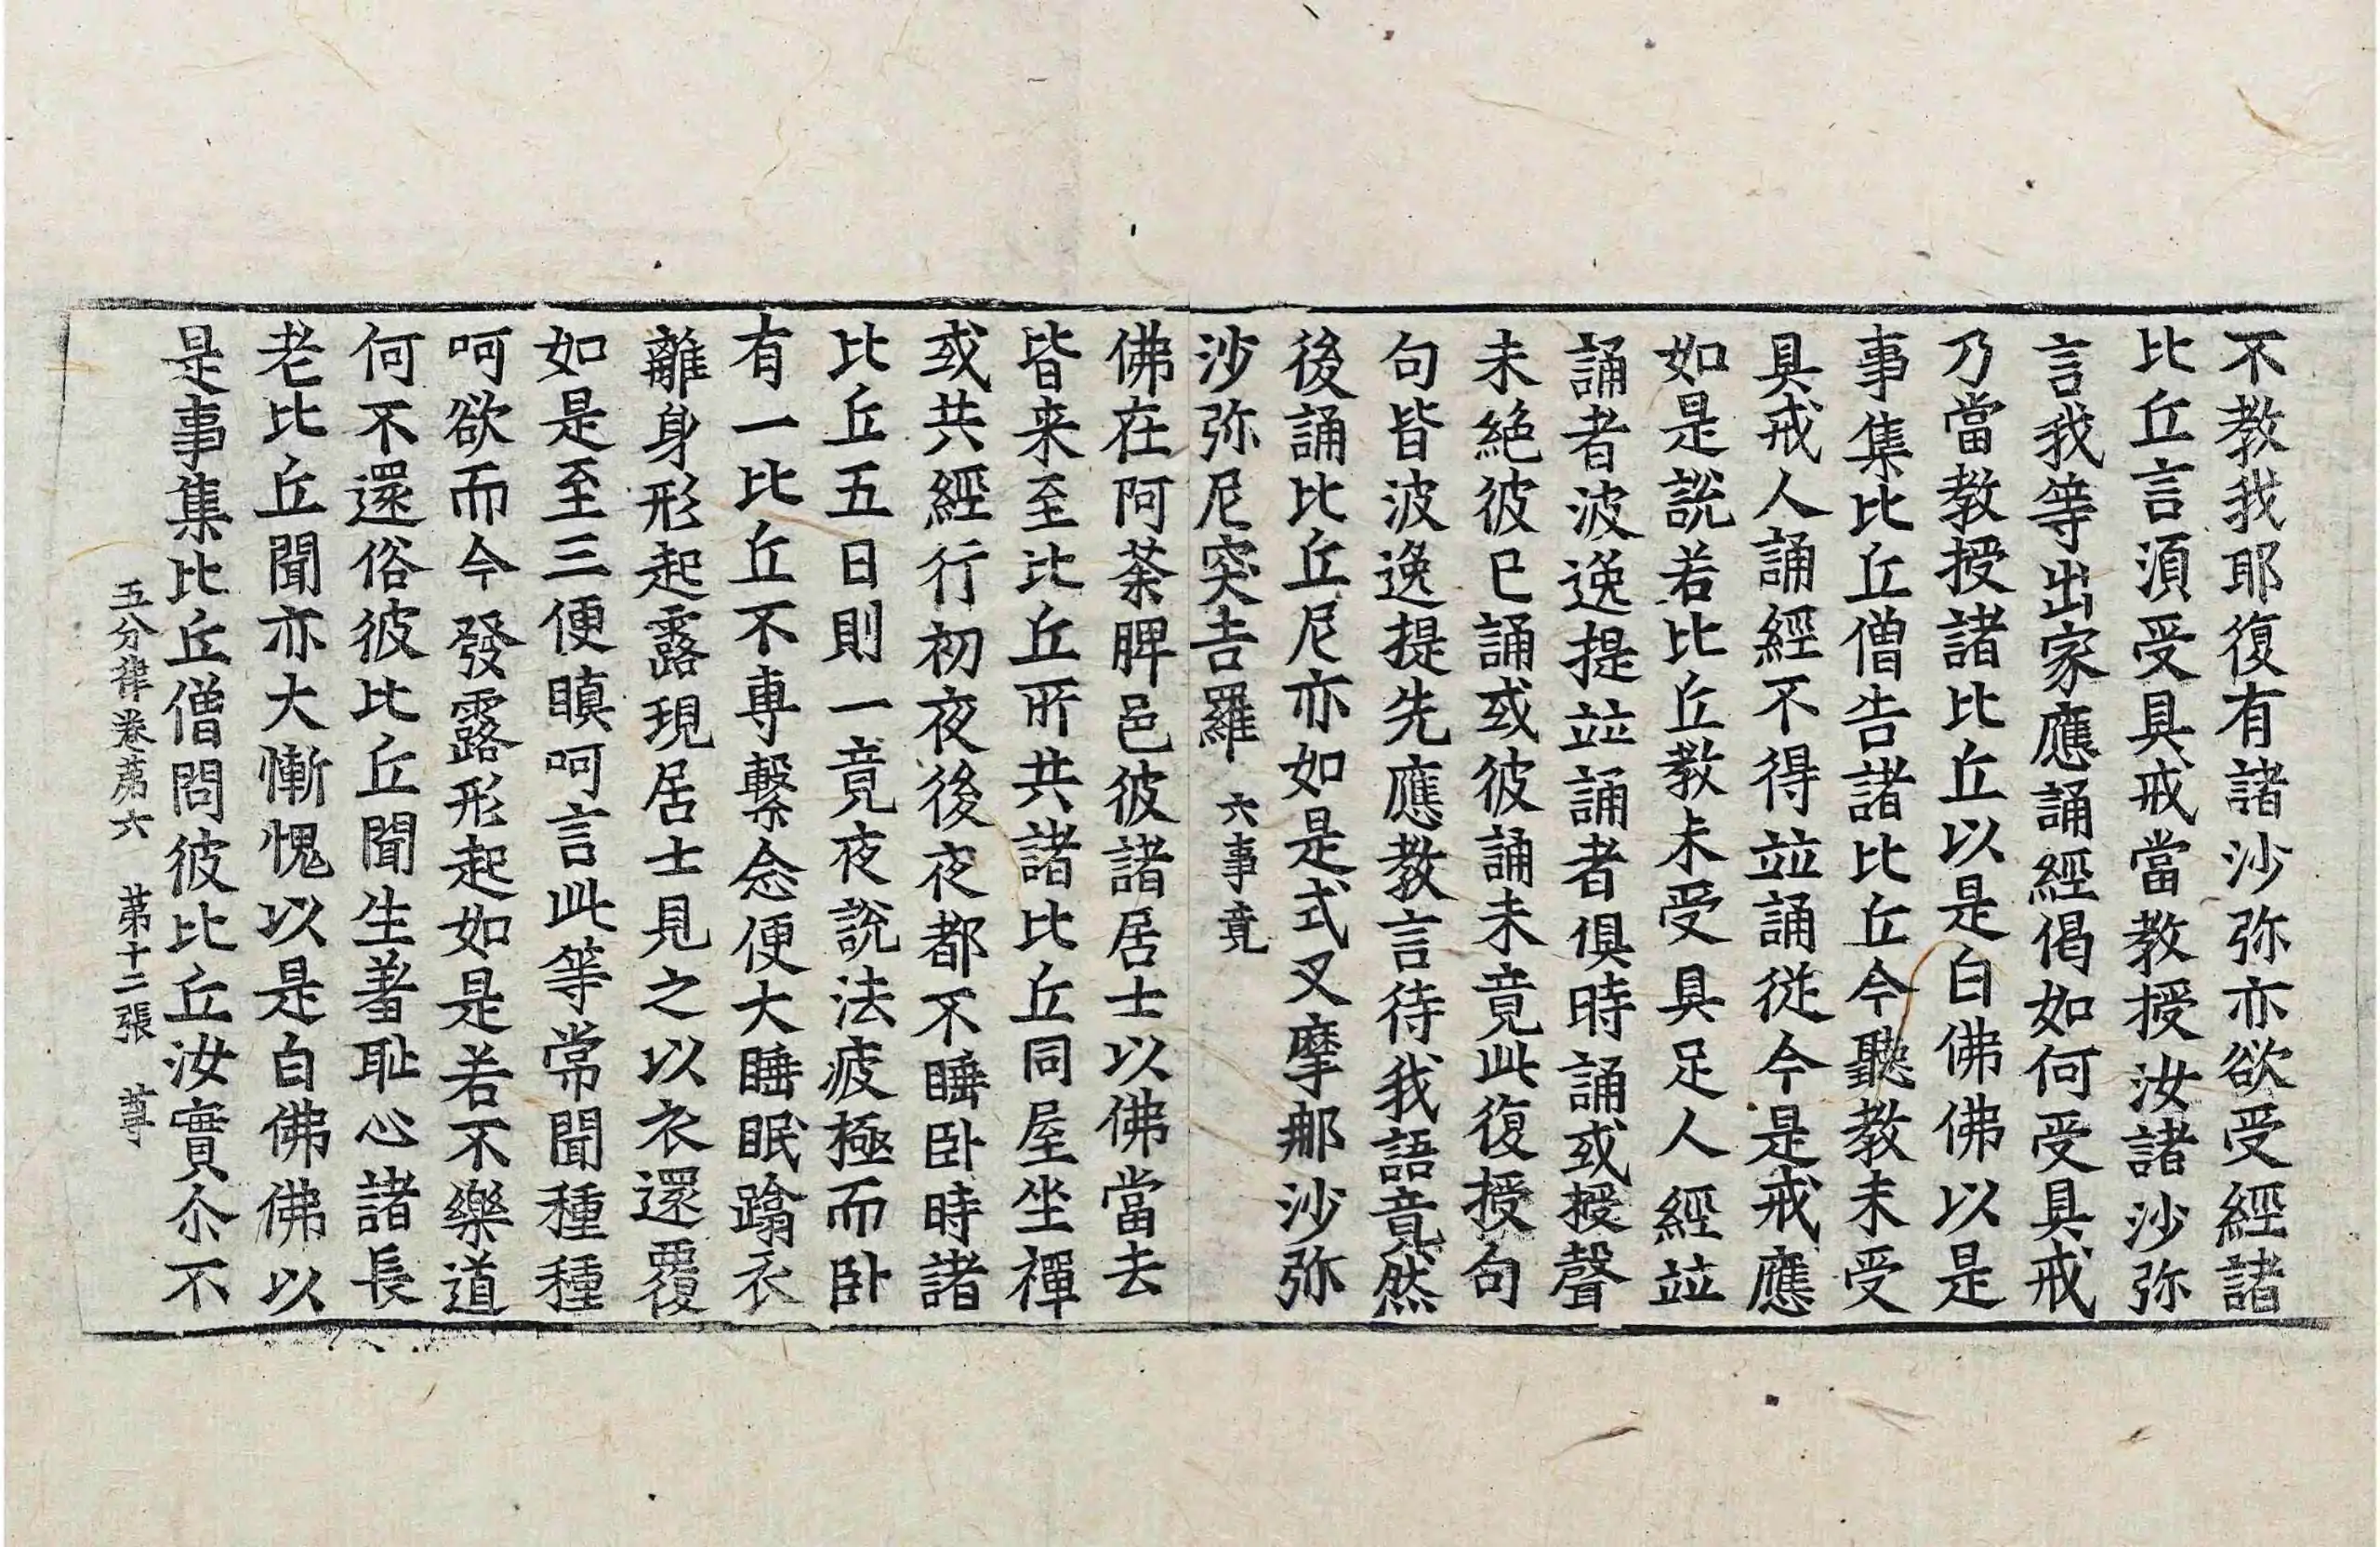 不教我耶復有諸沙弥亦欲受經諸
比丘言湏受具戒當教授汝諸沙弥
言我等出家應誦經偈如何受具戒
乃當教授諸比丘以是白佛佛以是
事集比丘僧告諸比丘今聽教未受
具戒人誦經不得竝誦從今是戒應
如是說若比丘教未受具足人經竝
誦者波逸提竝誦者俱時誦或授聲
未絕彼已誦或彼誦未竟此復授句
句皆波逸提先應教言待我語竟然
後誦比丘尼亦如是式叉摩那沙弥
沙弥尼突吉羅 六事竟
佛在阿荼脾邑彼諸居士以佛當去
皆来至比丘所共諸比丘同屋坐禪
或共經行初夜後夜都不睡卧時諸
比丘五日則一竟夜說法疲極而卧
有一比丘不專繫念便大睡眠蹹衣
離身形起露現居士見之以衣還覆
如是至三便瞋呵言此等常聞種種
呵欲而今發露形起如是若不樂道
何不還俗彼比丘聞生羞耻心諸長
老比丘聞亦大慚愧以是白佛佛以
是事集比丘僧問彼比丘汝實尒不
五分律卷苐六 苐十二張 尊